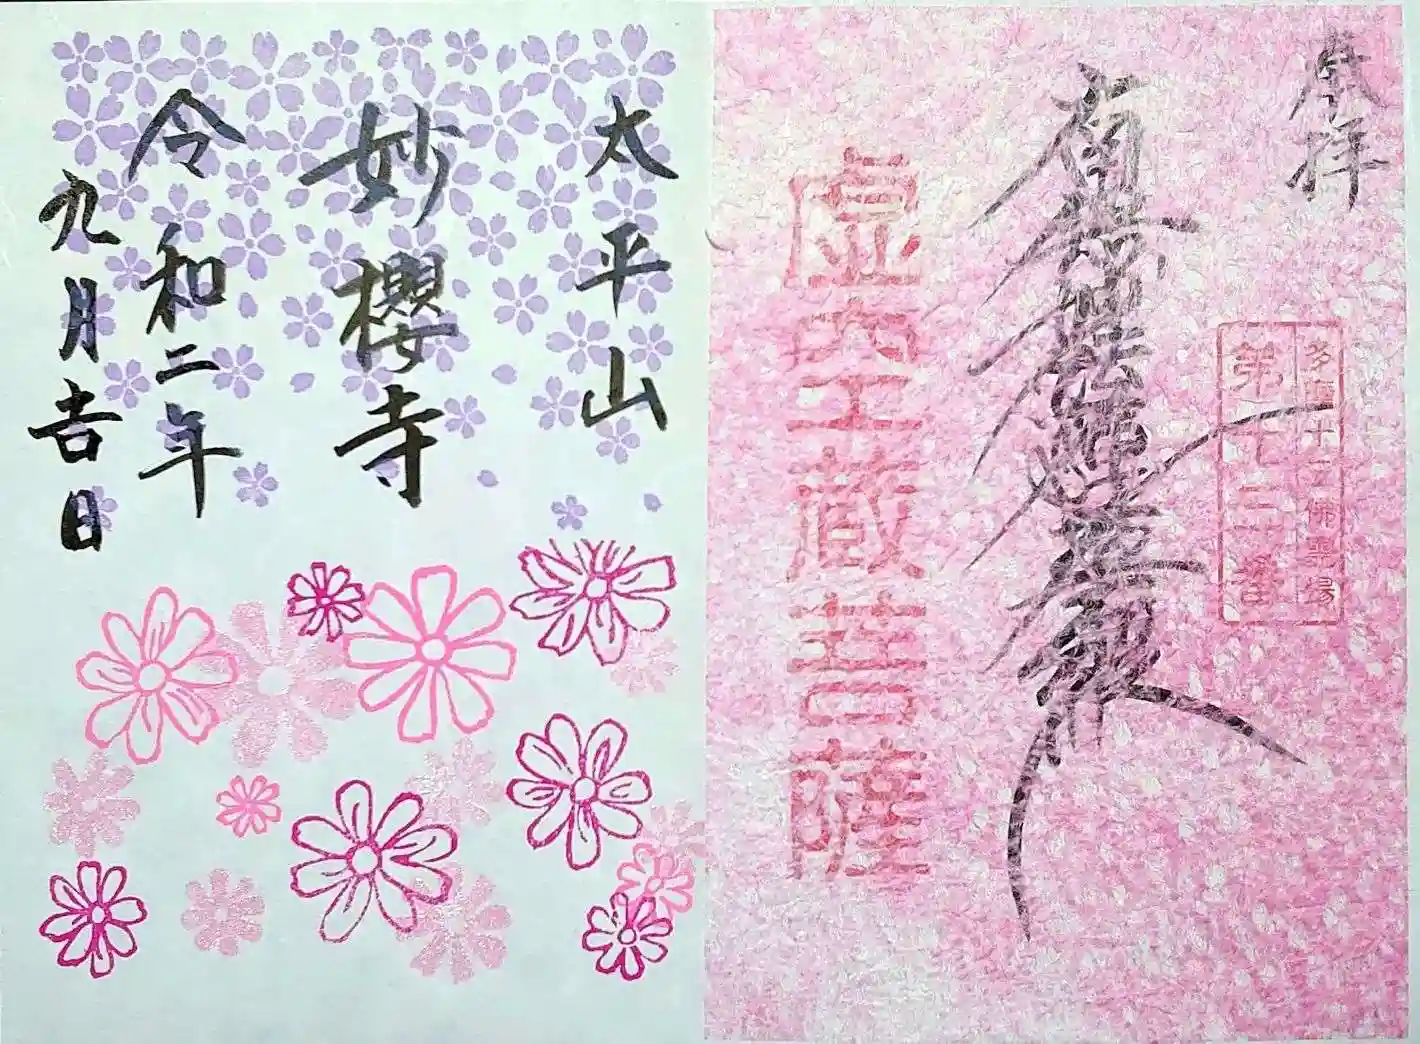 奉拝
十三佛霊場
第十三番
南無妙法蓮華経
虚空蔵菩薩
太平山
妙櫻寺
令和二年
九月吉日